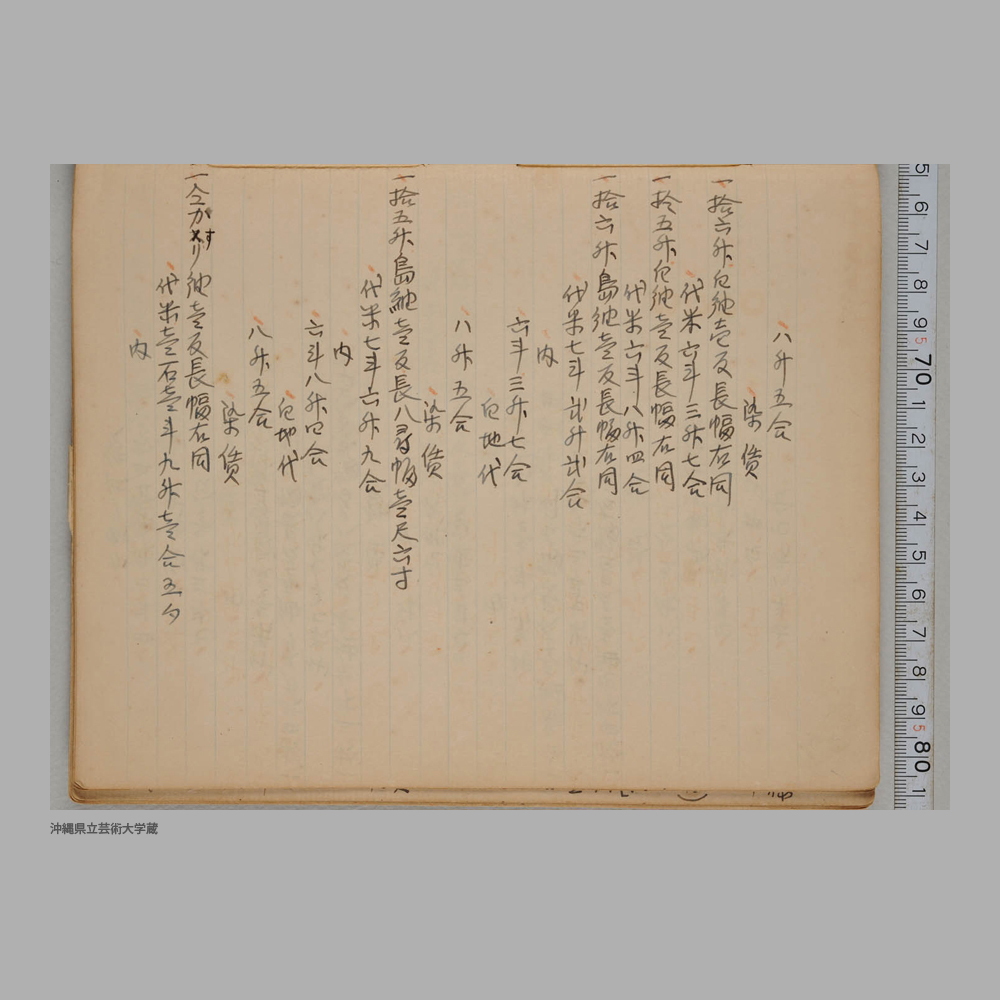 八升五合
染賃
一拾六升白紬壱反長幅右同
代米六斗三升七合
一拾五升白紬壱反長幅右同
代米六斗八升四合
一拾六升島紬壱反長幅右同
代米七斗弐升弐合
内
六斗三升七合
白地代
八升五合
染賃
一拾五升島紬壱反長八尋幅壱尺六寸
代米七斗六升九合
内
六斗八升四合
白地代
八升五合
染賃
紬壱反長幅右同
代米壱石壱斗九升壱合五勺
内
沖縄県立芸術大学蔵